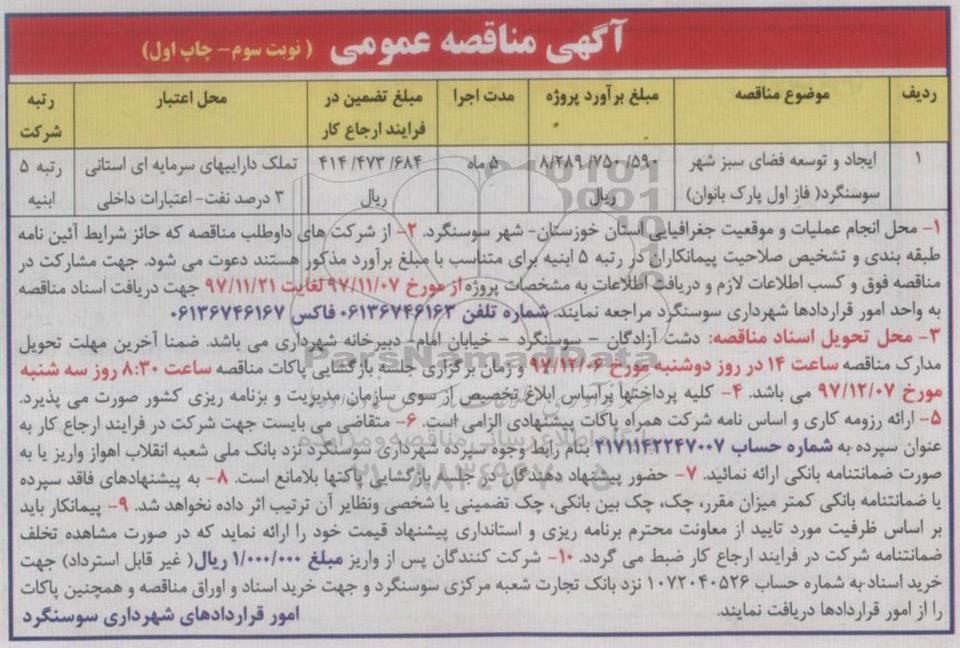 آگهی مناقصه عمومی ( نوبت سوم- چاپ اول)
ردیف موضوع مناقصه مبلغ برآورد پروژه مدت اجرا مبلغ تضمین در فرایند ارجاع کار محل اعتبار رتبه شرکت
۱ ایجاد و توسعه فضای سبز شهر سوسنگرد( فاز اول پارک بانوان) ۸/۲۸۹/۷۵۰/۵۹۰ ریال ۵ ماه ۴۱۴/۴۷۳/۶۸۴ ریال تملک داراییهای سرمایه ای استانی ۳ درصد نفت- اعتبارات داخلی رتبه ۵ ابنیه
۱- محل انجام عملیات و موقعیت جغرافیایی استان خوزستان- شهر سوسنگرد. ۲- از شرکت های داوطلب مناقصه که حائز شرایط آئین نامه
طبقه بندی و تشخیص صلاحیت پیمانکاران در رتبه ۵ ابنیه برای متناسب با مبلغ برآورد مذکور هستند دعوت می شود. جهت مشارکت در
مناقصه فوق و کسب اطلاعات لازم و دریافت اطلاعات به مشخصات پروژه از مورخ ۹۷/۱۱/۰۷ لغایت ۹۷/۱۱/۲۱ جهت دریافت اسناد مناقصه
به واحد امور قراردادها شهرداری سوسنگرد مراجعه نمایند. شماره تلفن ۰۶۱۳۶۷۴۶۱۶۳ فاکس ۰۶۱۳۶۷۴۶۱۶۷
۳- محل تحویل اسناد مناقصه: دشت آزادگان - سوسنگرد - خیابان امام- دبیرخانه شهرداری می باشد. ضمنا آخرین مهلت تحویل
مدارک مناقصه ساعت ۱۴ در روز دوشنبه مورخ ۹۷/۱۲/۰۶ و زمان برگزاری جلسه بازگشایی پاکات مناقصه ساعت ۸:۳۰ روز سه شنبه
مورخ ۹۷/۱۲/۰۷ می باشد. ۴- کلیه پرداختها براساس ابلاغ تخصیص از سوی سازمان مدیریت و برنامه ریزی کشور صورت می پذیرد.
۵- ارائه رزومه کاری و اساس نامه شرکت همراه پاکات پیشنهادی الزامی است. ۶- متقاضی می بایست جهت شرکت در فرایند ارجاع کار به
عنوان سپرده به شماره حساب ۲۱۷۱۱۴۲۲۴۷۰۰۷ بنام رابط وجوه سپرده شهرداری سوسنگرد نزد بانک ملی شعبه انقلاب اهواز واریز یا به
صورت ضمانتنامه بانکی ارائه نمائید. ۷- حضور پیشنهاد دهندگان در جلسه بازگشایی پاکتها بلامانع است. ۸- به پیشنهادهای فاقد سپرده
یا ضمانتنامه بانکی کمتر میزان مقرر، چک، چک بین بانکی، چک تضمینی یا شخصی ونظایر آن ترتیب اثر داده نخواهد شد. ۹- پیمانکار باید
بر اساس ظرفیت مورد تایید از معاونت محترم برنامه ریزی و استانداری پیشنهاد قیمت خود را ارائه نماید که در صورت مشاهده تخلف
ضمانتنامه شرکت در فرایند ارجاع کار ضبط می گردد. ۱۰- شرکت کنندگان پس از واریز مبلغ ۱/۰۰۰/۰۰۰ ریال( غیر قابل استرداد) جهت
خرید اسناد به شماره حساب ۱۰۷۲۰۴۰۵۲۶ نزد بانک تجارت شعبه مرکزی سوسنگرد و جهت خرید اسناد و اوراق مناقصه و همچنین پاکات
را از امور قراردادها دریافت نمایند.
امور قراردادهای شهرداری سوسنگرد
ParsNamadData